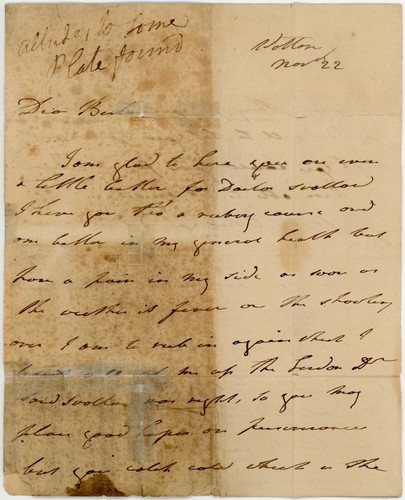 alludes to some
Plate found
Wotton
Nov 22
Dear
I am glad to hear you are even
a little better for Doctor
I have got thro a rubbing course and
am better in my general health but
have a pain in my side as soon as
the weather is finer or the shooting
over I am to rub in again that I
me up the London Dr
said was right, so you may
place good hopes on perseverance
but you catch cold that is the